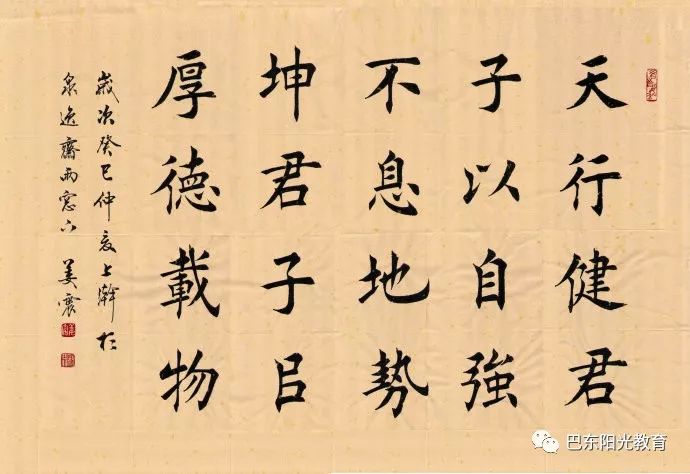 天行健君
子以自強
不息地勢
坤君子㠯
厚德載物
歲次癸巳仲夏上澣於
泉逸齋雨窓下 姜震
巴东阳光教育